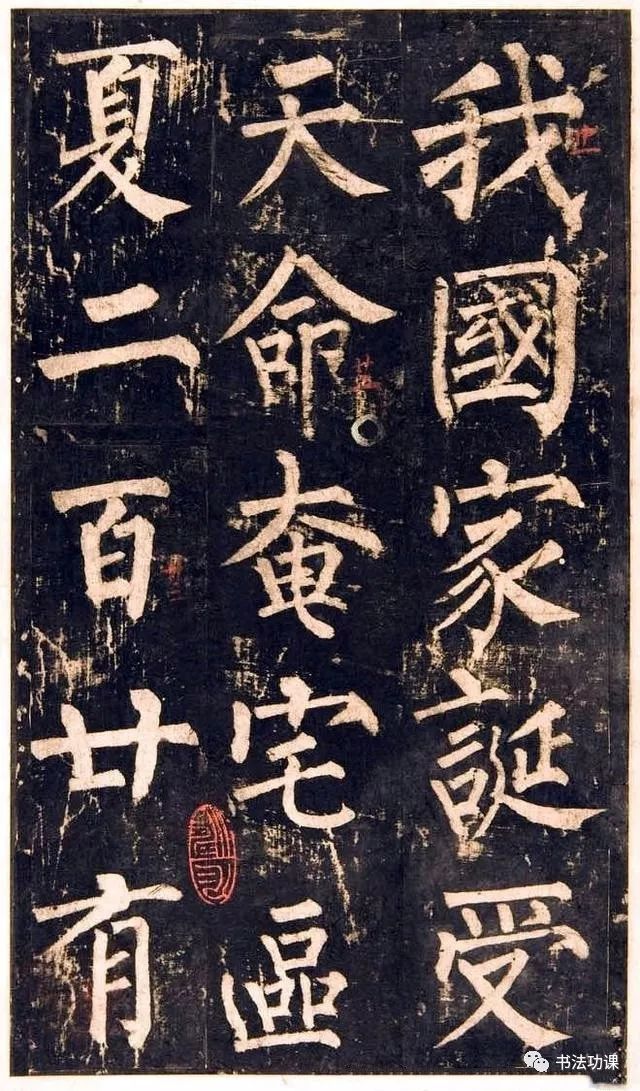 我國家誕受
天命奄宅區
夏二百廿有
书法功课